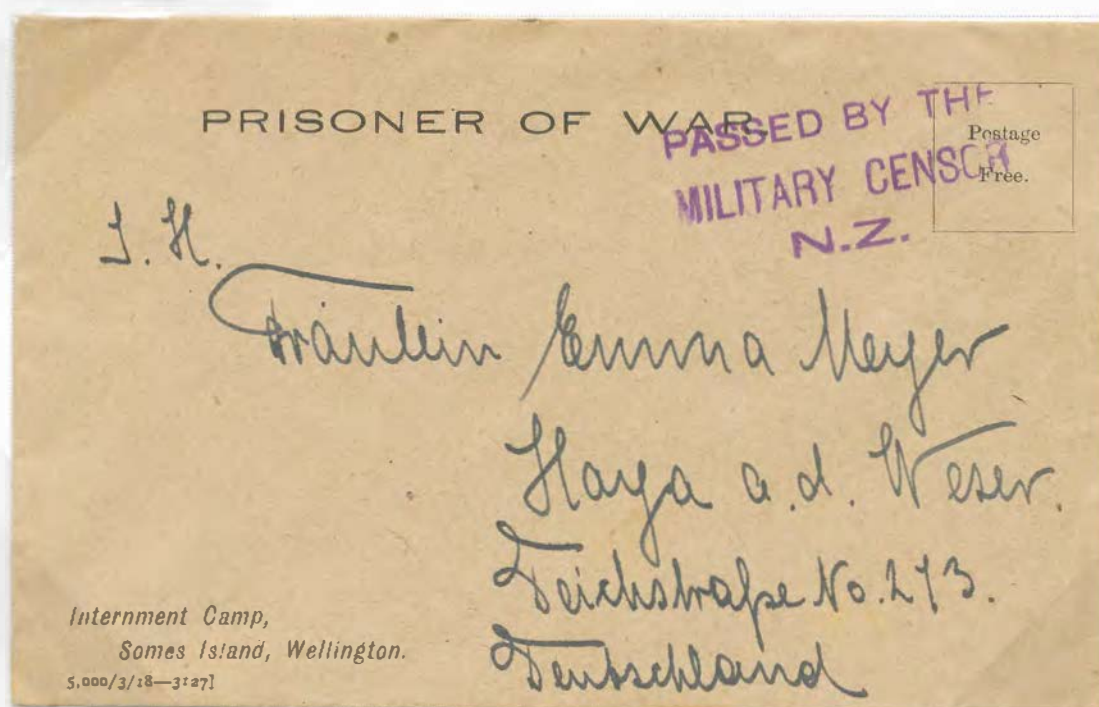 PRISONER OF WAR.
PASSED BY THE
MILITARY CENSOR
N.Z.
Postage
Free.
J. H.
Fräulein Emma Meyer
Haya a.d. Weser.
Deichstraße No. 273.
Deutschland
Internment Camp,
Somes Island, Wellington.
5,000/3/18—3127]